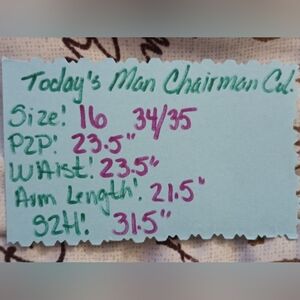 Today's Man Chairman Col.
Size: 16 34/35
P2P: 23.5"
Waist: 23.5"
Arm Length: 21.5"
S2H: 31.5"